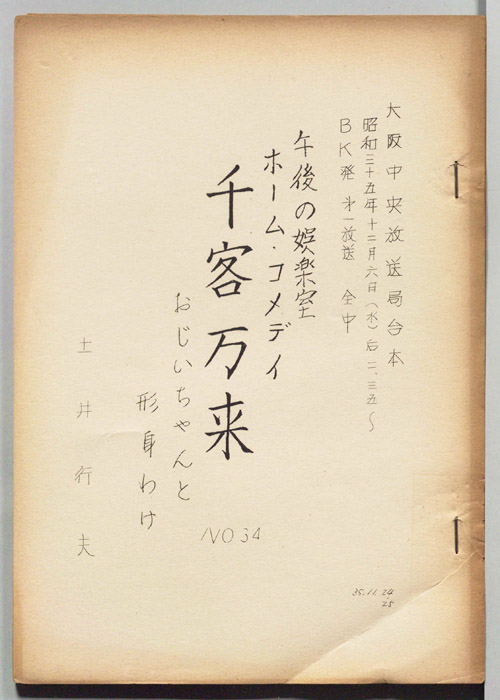 大阪中央放送局台本
昭和三十五年十二月六日(水)后二、三五〜
BK発 㐧一放送 全中
午後の娯楽室
ホーム・コメディ
千客万来
NO 34
おじいちゃんと
形身わけ
土井行夫
35.11.24
25